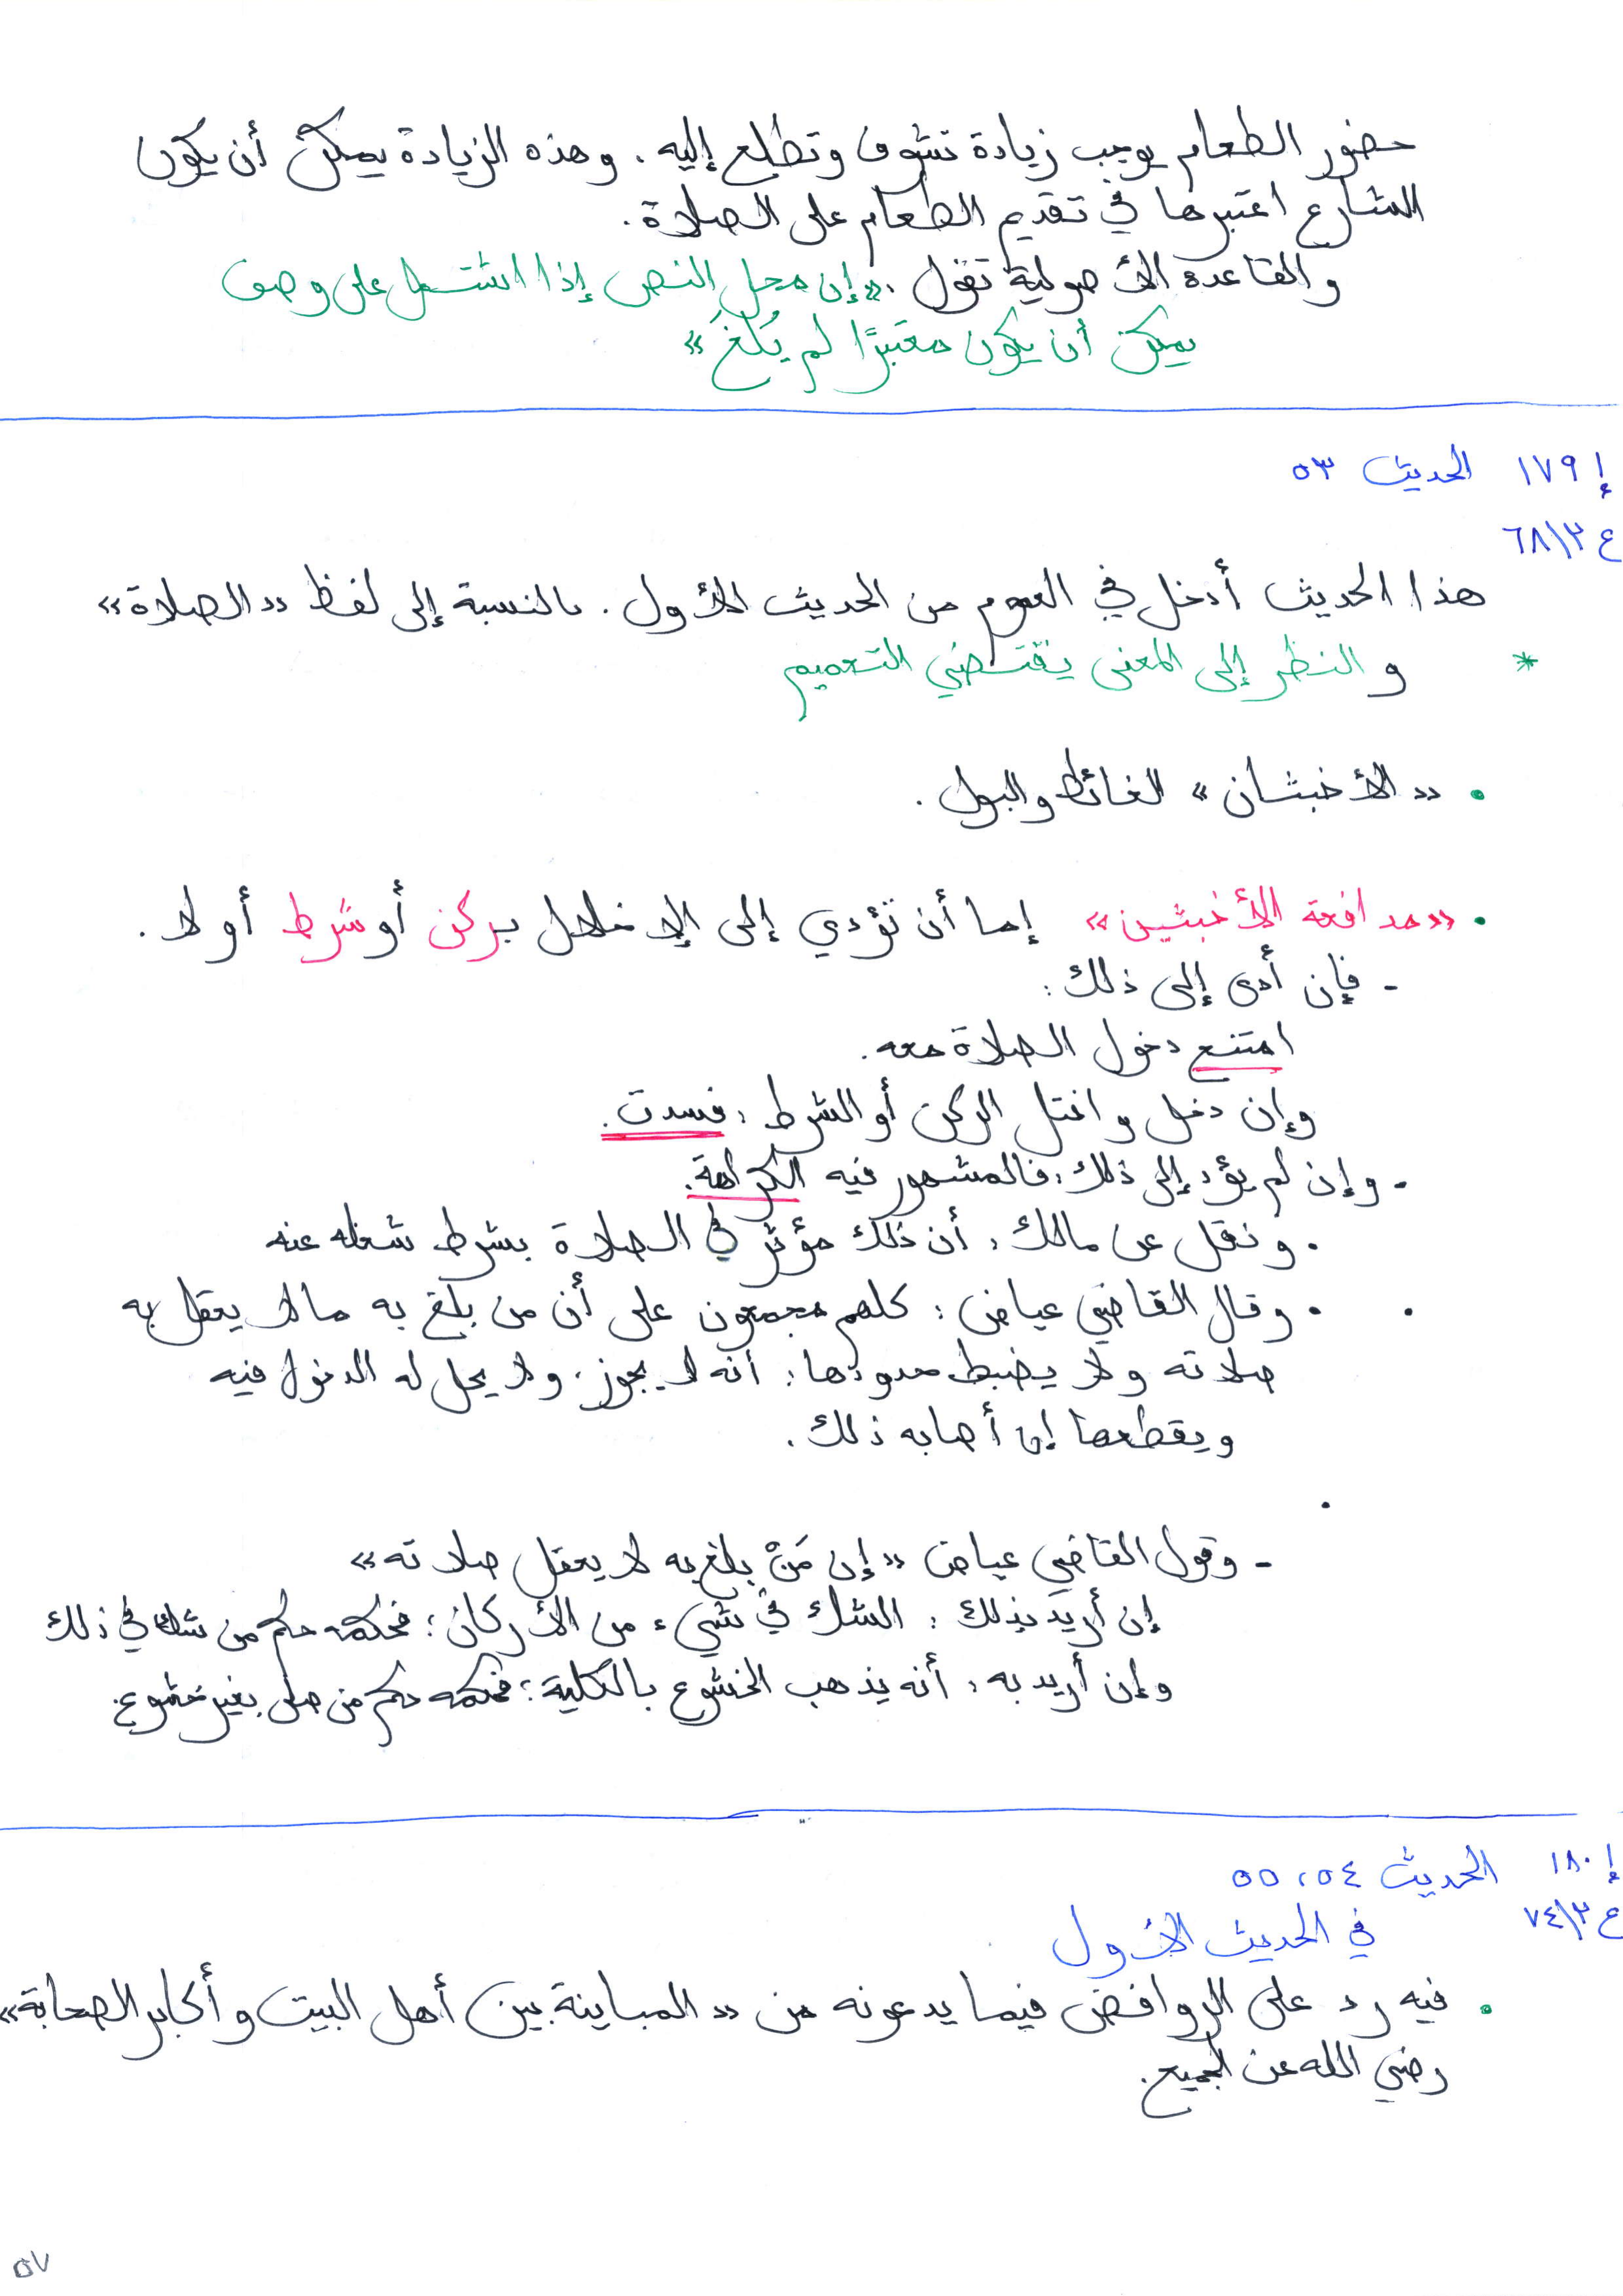 حضور الطعام يوجب زيادة تشوف وتطلع إليه. وهذه الزيادة يمكن أن يكون
الشارع اعتبرها في تقديم الطعام على الصلاة.
والقاعدة الأصولية تقول: «إن محل النص إذا اشتمل على وصف
يمكن أن يكون معتبرًا لم يُلغَ»
إ ١٧٩ الحديث ٥٣
ع ٦٨/٢
هذا الحديث أدخل في العموم من الحديث الأول. بالنسبة إلى لفظ «الصلاة»
* والنظر إلى المعنى يقتضي التعميم
• «الأخبثان» الغائط والبول.
• «مدافعة الأخبثين» إما أن تؤدي إلى الإخلال بركن أو شرط أو لا.
- فإن أدى إلى ذلك:
امتنع دخول الصلاة معه.
وإن دخل واختل الركن أو الشرط: فسدت.
- وإن لم يؤد إلى ذلك: فالمشهور فيه الكراهة.
• ونقل عن مالك: أن ذلك مؤثر في الصلاة بشرط شغله عنه
• • وقال القاضي عياض: كلهم مجمعون على أن من بلغ به ما لا يعقل به
صلاته ولا يضبط حدودها: أنه لا يجوز، ولا يحل له الدخول فيه
ويقطعها إن أصابه ذلك.
•
- وقول القاضي عياض «إن مَنْ بلغ به لا يعقل صلاته»
إن أريد بذلك: الشك في شيء من الأركان: فحكمه حكم من شك في ذلك
وإن أريد به: أنه يذهب الخشوع بالكلية: فحكمه حكم من صلى بغير خشوع.
إ ١٨٠ الحديث ٥٤، ٥٥
ع ٧٤/٢
في الحديث الأول
• فيه رد على الروافض فيما يدعونه من «المباينة بين أهل البيت وأكابر الصحابة»
رضي الله عن الجميع.
٥٧